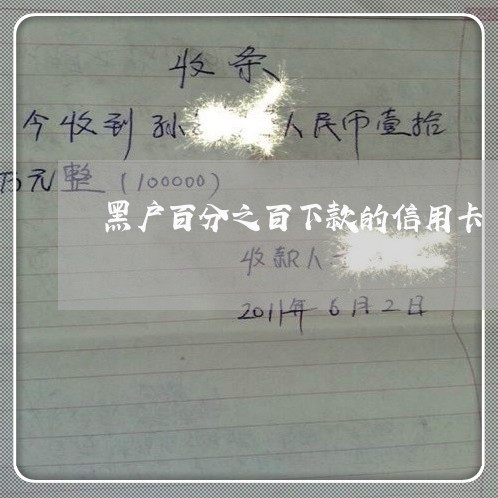 收条
今收到孙 人民币壹拾
万元整(100000)
黑户百分之百下款的信用卡
收款人
2011年6月2日